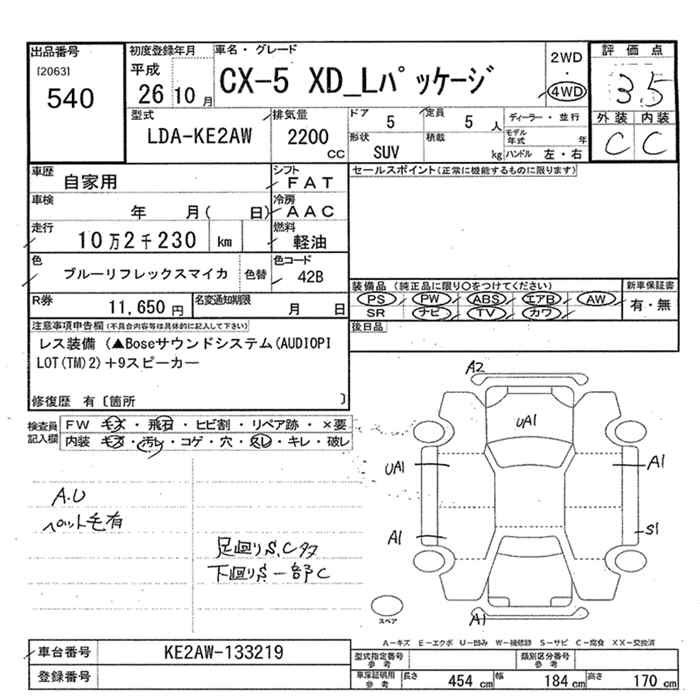 出品番号
[2063]
540
初度登録年月
平成
26 10 月
車名・グレード
CX-5 XD_Lパッケージ
2WD
・
4WD
評価点
3.5
外装 内装
C C
型式
LDA-KE2AW
排気量
2200
CC
ドア
5
定員
5 人
ディーラー・並行
形状
SUV
積載
kg
モデル年式 年
ハンドル 左・右
車歴
自家用
シフト
FAT
車検
年 月( 日)
冷房
AAC
走行
10万2千230 km
燃料
軽油
色
ブルーリフレックスマイカ
色替
色コード
42B
R券
11,650 円
名変通知期限
月 日
セールスポイント(正常に機能するものに限ります)
装備品 (純正品に限り○をつけてください)
PS PW ABS エアB AW
SR ナビ TV カワ
新車保証書
有・無
後日品
注意事項申告欄(不具合内容等は具体的に記入して下さい)
レス装備 (▲Boseサウンドシステム(AUDIOPI
LOT(TM)2)+9スピーカー
修復歴 有〔箇所 〕
検査員記入欄
FW キズ・飛石・ヒビ割・リペア跡・×要
内装 キズ・汚レ・コゲ・穴・スレ・キレ・破レ
A.U
ペット毛有
足廻りS.Cタタ
下廻りS一部C
A2
UA1
UA1
A1
A1
S1
A1
スペア
A-キズ E-エクボ U-凹み W-補修跡 S-サビ C-腐食 XX-交換済
車台番号
KE2AW-133219
登録番号
型式指定番号
参考
類別区分番号
参考
車庫証明用
参考
長さ 454 cm 幅 184 cm 高さ 170 cm